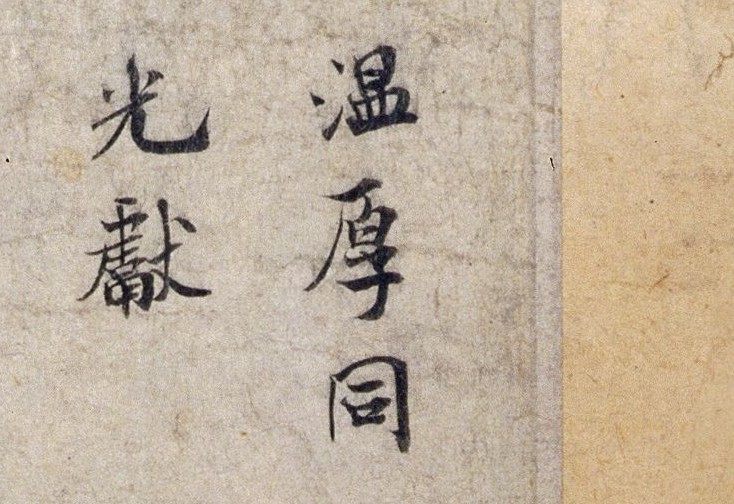 温厚同
光獻